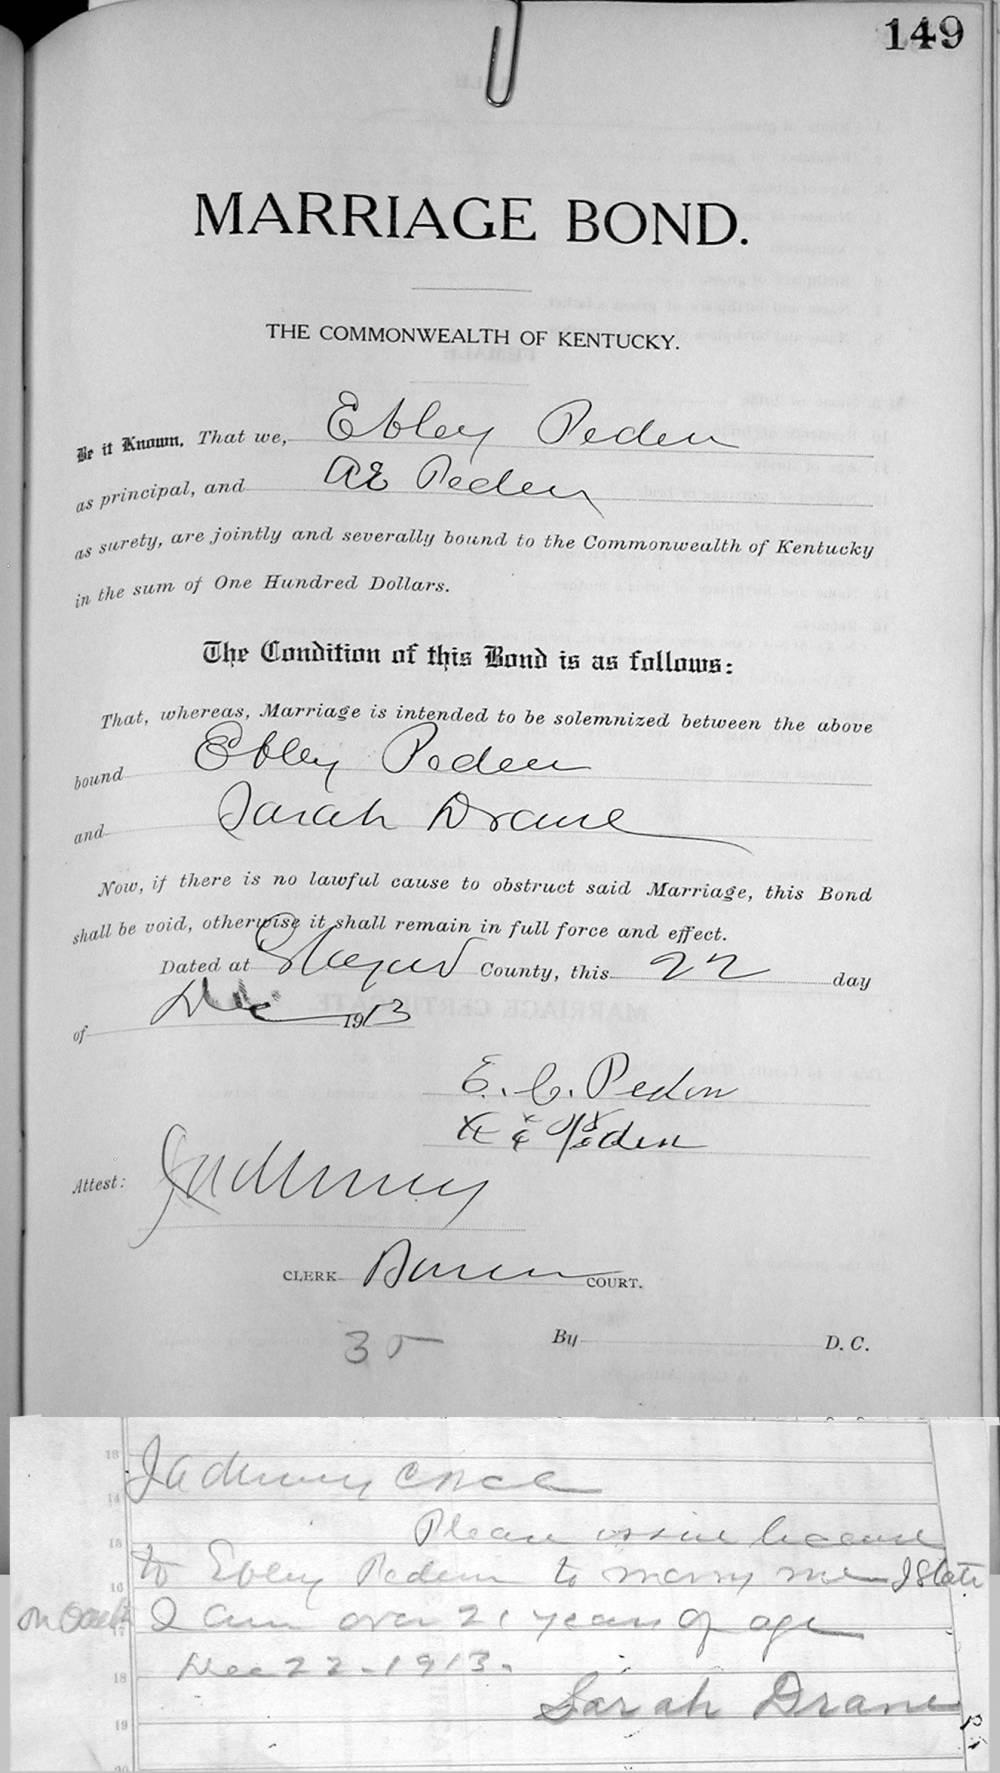 149
MARRIAGE BOND.
THE COMMONWEALTH OF KENTUCKY.
Be it Known, That we, Ebley Peden
as principal, and AE Peden
as surety, are jointly and severally bound to the Commonwealth of Kentucky
in the sum of One Hundred Dollars.
The Condition of this Bond is as follows:
That, whereas, Marriage is intended to be solemnized between the above
bound Ebley Peden
and Sarah Drane
Now, if there is no lawful cause to obstruct said Marriage, this Bond
shall be void, otherwise it shall remain in full force and effect.
Dated at County, this 22 day
of Dec 1913
E. C. Peden
Peden
Attest:
CLERK Barren COURT.
35
By D. C.
13
14
Please issue license
15
to Ebley Peden to marry me I State
16
on oath I am over 21 years of age
17
Dec 22-1913.
18
Sarah Drane
19
20